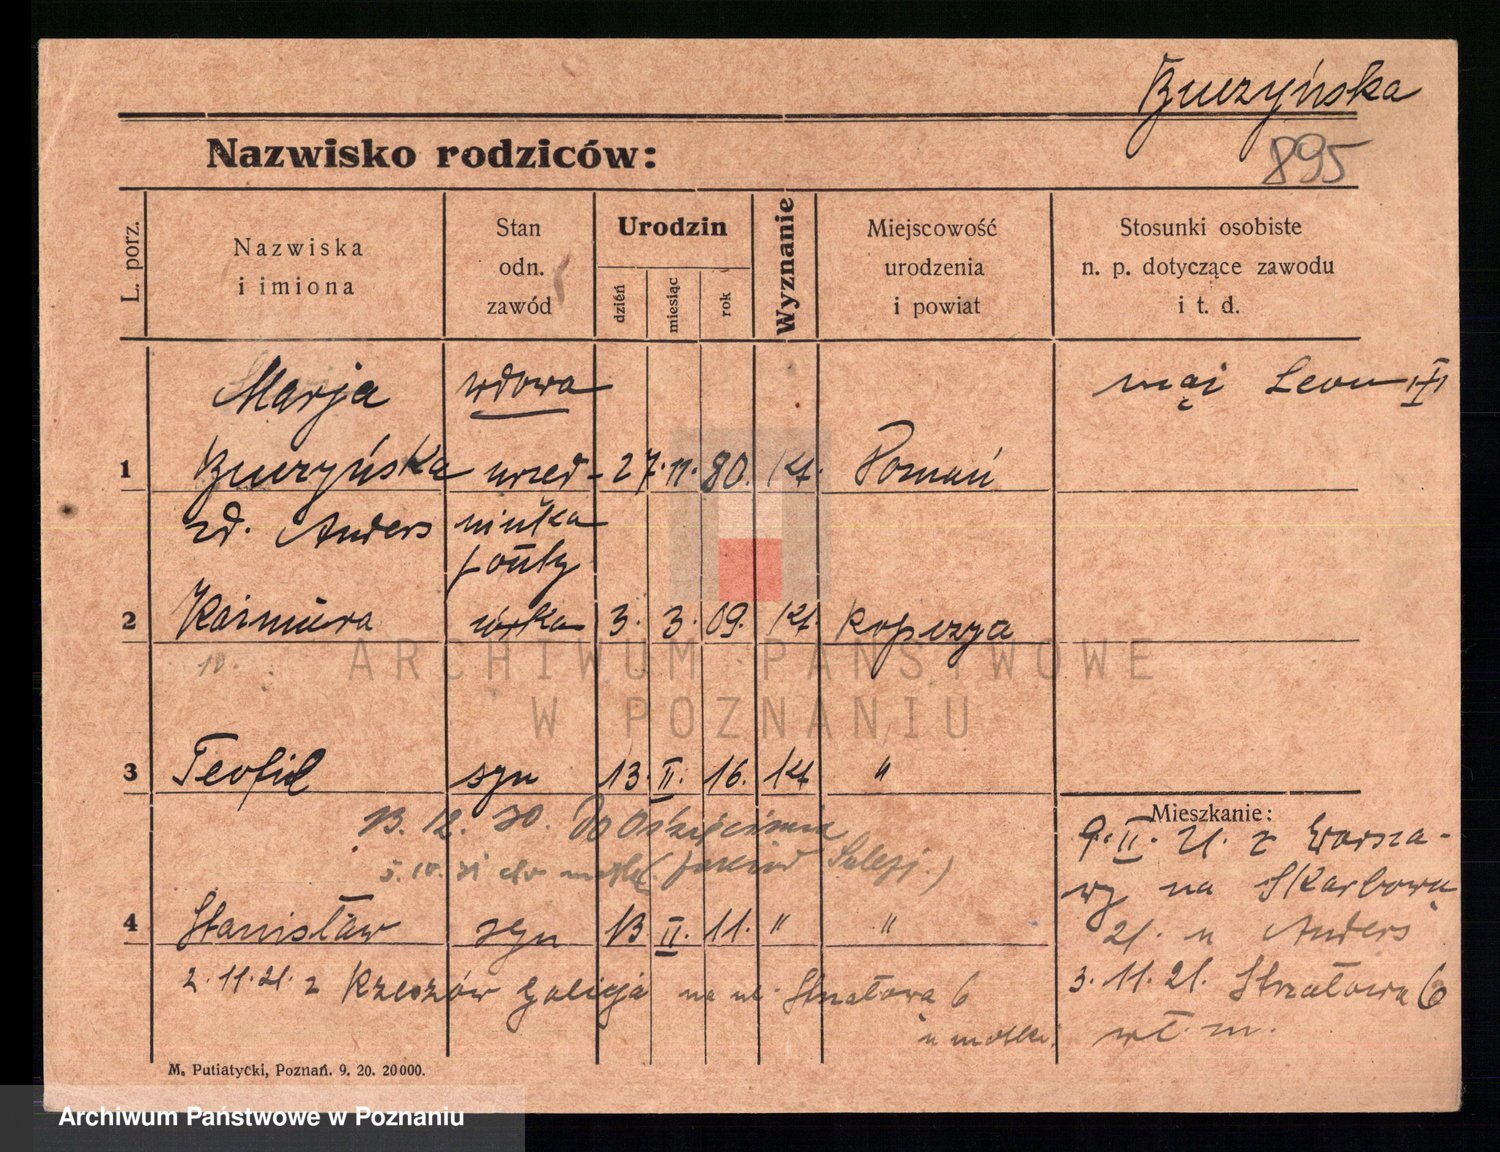 Buczyńska
895
Nazwisko rodziców:
L. porz.
Nazwiska
i imiona
Stan
odn.
zawód
Urodzin
dzień
miesiąc
rok
Wyznanie
Miejscowość
urodzenia
i powiat
Stosunki osobiste
n. p. dotyczące zawodu
i t. d.
Marja wdowa mąż Leon
1 Buczyńska urzęd- 27. 11. 80. kt. Poznań
zd. Anders niczka
poczty
2 Kazimiera córka 3. 3. 09. kt.
10.
ARCHIWUM PAŃSTWOWE
W POZNANIU
3 Teofil syn 13. II. 16. kt. "
Mieszkanie:
13. 12. 30. Do Oświęcimia
5. 10. 31 do matki ( Salezj.)
9. II. 21. z Warsza-
wy na Skarbową
21. u Anders
4 Stanisław syn 13 II. 11. " "
2. 11. 21. z Rzeszów Galicja na ul. Strzałowa 6
u matki.
3. 11. 21. Strzałowa 6
wł. m.
M. Putiatycki, Poznań. 9. 20. 20000.
Archiwum Państwowe w Poznaniu